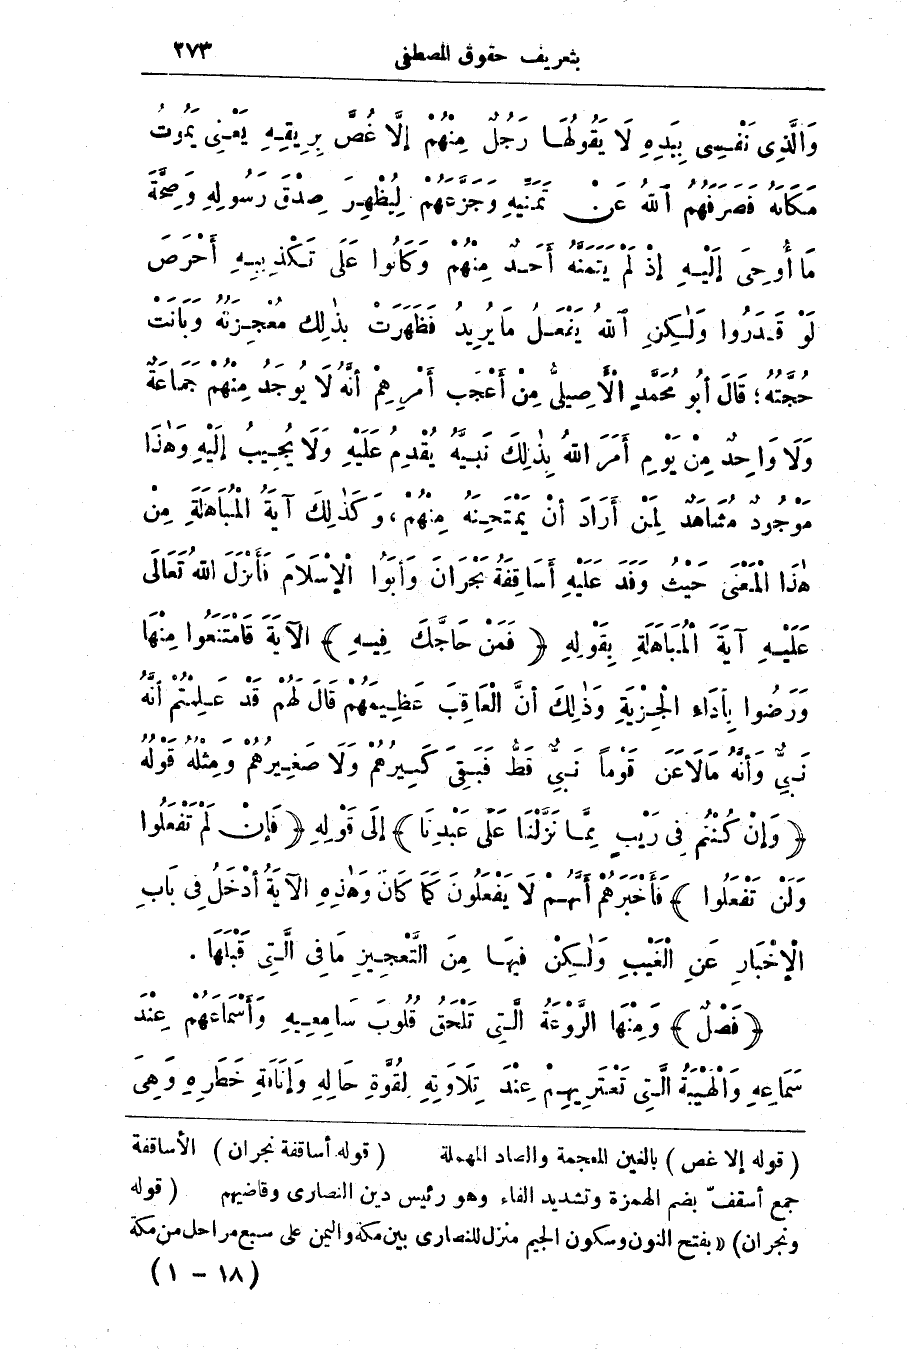 بتعريف حقوق المصطفى ٢٧٣
وَالَّذِى نَفْسِى بِيَدِهِ لَا يَقُولُهَا رَجُلٌ مِنْهُمْ إلَّا غُصَّ بِرِيقِهِ يَعْنِى يَمُوتُ
مَكَانَهُ فَصَرَفَهُمُ اللهُ عَنْ تَمَنِّيهِ وَجَزَّعَهُمْ لِيُظْهِرَ صِدْقَ رَسُولِهِ وَصِحَّةَ
مَا أُوحِىَ إلَيْهِ إذْ لَمْ يَتَمَنَّهُ أَحَدٌ مِنْهُمْ وَكَانُوا عَلَى تَكْذِيبِهِ أَحْرَصَ
لَوْ قَدَرُوا وَلٰكِنِ اللهُ يَفْعَلُ مَا يُرِيدُ فَظَهَرَتْ بذٰلِكَ مُعْجِزَتُهُ وَبَانَتْ
حُجَّتُهُ؛ قَالَ أبُو مُحَمَّدٍ الْأَصِيلِىُّ مِنْ أَعْجَبِ أَمْرِهِمْ أنَّهُ لَا يُوجَدُ مِنْهُمْ جَمَاعَةٌ
وَلَا وَاحِدٌ مِنْ يَوْمِ أَمَرَ اللهُ بِذٰلِكَ نَبِيَّهُ يُقْدِمُ عَلَيْهِ وَلَا يُجِيبُ إلَيْهِ وَهٰذَا
مَوْجُودٌ مُشَاهَدٌ لِمَنْ أَرَادَ أنْ يَمْتَحِنَهُ مِنْهُمْ، وَكَذٰلِكَ آيَةُ الْمُبَاهَلَةِ مِنْ
هٰذَا الْمَعْنَى حَيْثُ وَفَدَ عَلَيْهِ أَسَاقِفَةُ نَجْرَانَ وَأَبَوُا الْإسْلَامَ فَأَنْزَلَ اللهُ تَعَالَى
عَلَيْهِ آيَةَ الْمُبَاهَلَةِ بِقَوْلِهِ ﴿ فَمَنْ حَاجَّكَ فِيهِ ﴾ الآيَةَ فَامْتَنَعُوا مِنْهَا
وَرَضُوا بِأَدَاءِ الْجِزْيَةِ وَذٰلِكَ أنَّ الْعَاقِبَ عَظِيمَهُمْ قَالَ لَهُمْ قَدْ عَلِمْتُمْ أنَّهُ
نَبِىٌّ وَأنَّهُ مَالَاعَنَ قَوْماً نَبِىٌّ قَطُّ فَبَقِىَ كَبِيرُهُمْ وَلَا صَغِيرُهُمْ وَمِثْلُهُ قَوْلُهُ
﴿ وَإنْ كُنْتُمْ فِى رَيْبٍ مِمَّا نَزَّلْنَا عَلَى عَبْدِنَا ﴾ إلَى قَوْلِهِ ﴿ فَإنْ لَمْ تَفْعَلُوا
وَلَنْ تَفْعَلُوا ﴾ فَأَخْبَرَهُمْ أنَّهُمْ لَا يَفْعَلُونَ كَمَا كَانَ وَهٰذِهِ الآيَةُ أدْخَلُ فِى بَابِ
الْإخْبَارِ عَنِ الْغَيْبِ وَلٰكِنْ فِيهَا مِنَ التَّعْجِيزِ مَافِى الَّتِى قَبْلَهَا .
﴿ فَصْلٌ ﴾ وَمِنْهَا الرَّوْعَةُ الَّتِى تَلْحَقُ قُلُوبَ سَامِعِيهِ وَأَسْمَاعَهُمْ عِنْدَ
سَمَاعِهِ وَالْهَيْبَةُ الَّتِى تَعْتَرِيهِمْ عِنْدَ تِلَاوَتِهِ لِقُوَّةِ حَالِهِ وَإنَافَةِ خَطَرِهِ وَهِىَ
( قوله إلا غص ) بالغين المعجمة والصاد المهملة ( قوله أساقفة نجران ) الأساقفة
جمع أسقفّ بضم الهمزة وتشديد الفاء وهو رئيس دين النصارى وقاضيهم ( قوله
ونجران) «بفتح النون وسكون الجيم منزل للنصارى بين مكة واليمن على سبع مراحل من مكة
(١٨ – ١)